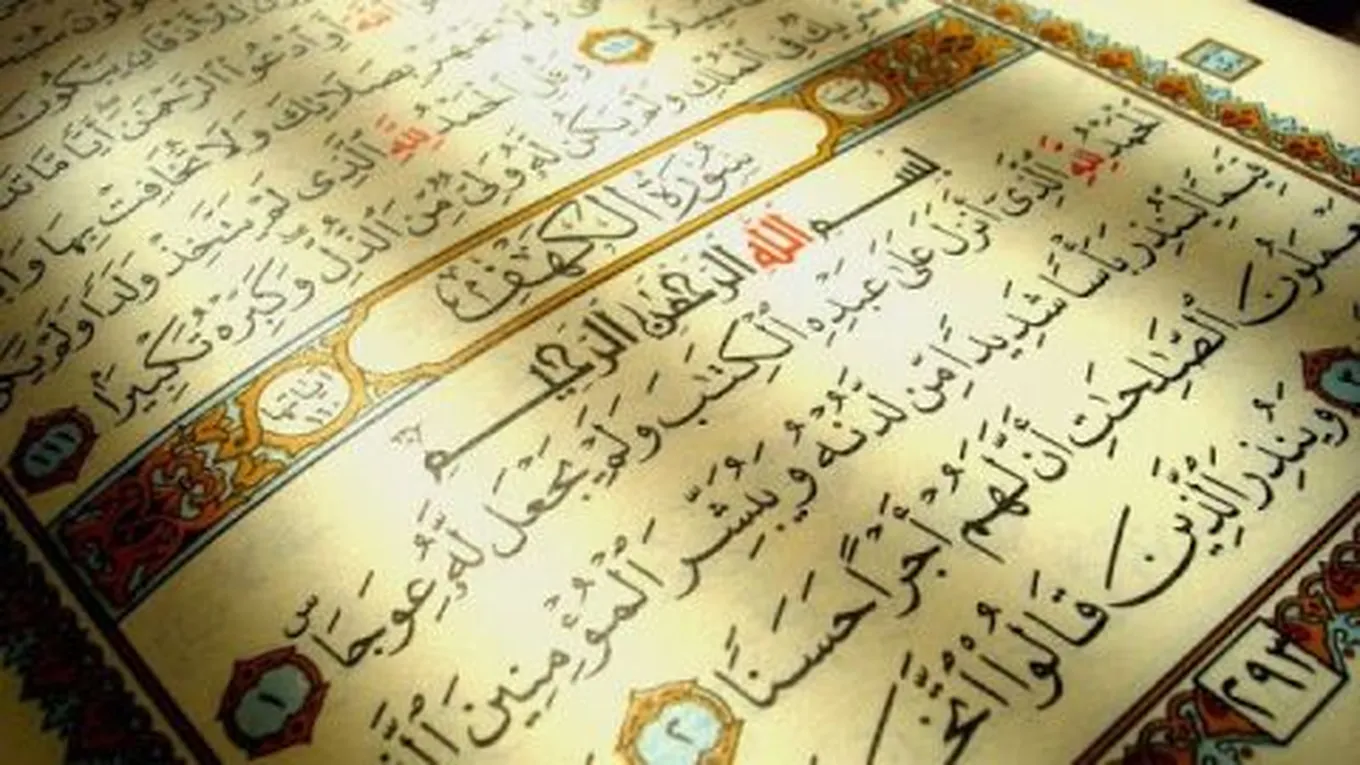 لِلْأَذْقَانِ يَبْكُونَ
ٱللَّهَ أَوِ ٱدْعُوا۟ ٱلرَّحْمَٰنَ أَيًّا مَّا
وَلَا تَجْهَرْ بِصَلَاتِكَ وَلَا تُخَافِتْ بِهَا
وَقُلِ ٱلْحَمْدُ لِلَّهِ ٱلَّذِى لَمْ يَتَّخِذْ وَلَدًا وَلَمْ يَكُن
شَرِيكٌ فِى ٱلْمُلْكِ وَلَمْ يَكُن لَّهُۥ وَلِىٌّ مِّنَ ٱلذُّلِّ وَكَبِّرْهُ تَكْبِيرًۢا ١١١
سُورَةُ الكَهْفِ
آيَاتُهَا ١١٠
بِسْمِ ٱللَّهِ ٱلرَّحْمَٰنِ ٱلرَّحِيمِ
ٱلْحَمْدُ لِلَّهِ ٱلَّذِىٓ أَنزَلَ عَلَىٰ عَبْدِهِ ٱلْكِتَٰبَ وَلَمْ يَجْعَل لَّهُۥ عِوَجَاۜ ١
قَيِّمًا لِّيُنذِرَ بَأْسًا شَدِيدًا مِّن لَّدُنْهُ وَيُبَشِّرَ ٱلْمُؤْمِنِينَ
يَعْمَلُونَ ٱلصَّٰلِحَٰتِ أَنَّ لَهُمْ أَجْرًا حَسَنًا ٢
وَيُنذِرَ ٱلَّذِينَ قَالُوا۟ ٱتَّخَذَ
٢٩٣